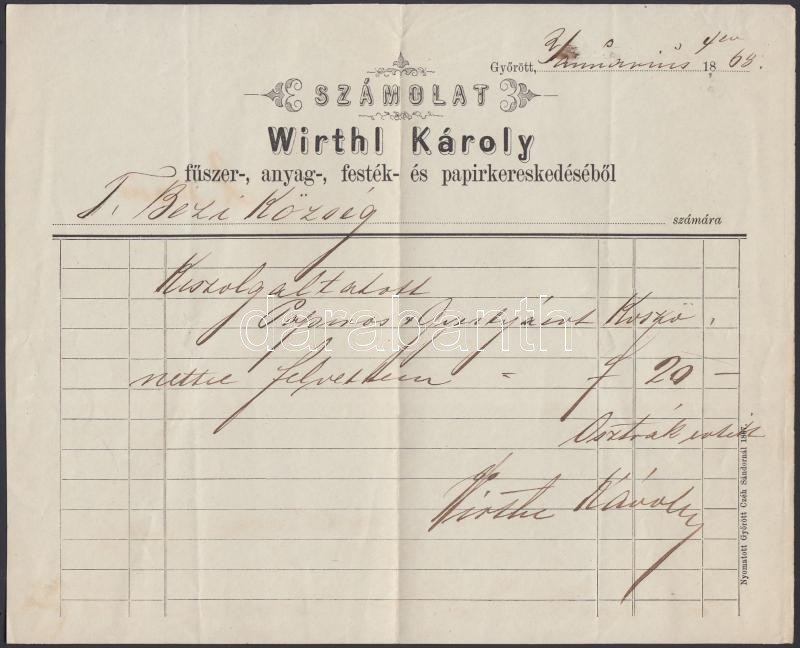 Győrött, 3/Januárius 4én 1868.
SZÁMOLAT
Wirthl Károly
fűszer-, anyag-, festék- és papirkereskedéséből
T. Bezi Község számára
Kiszolgáltatott
Papiros &
nettie felvettem = f 20 —
Osztrák
Wirthl Károly
Nyomatott Győrött Czéh Sándornál
darabanth